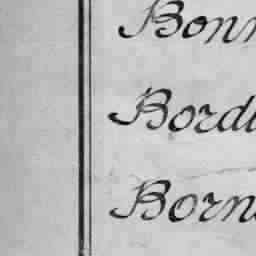 Bonn
Bordu
Born